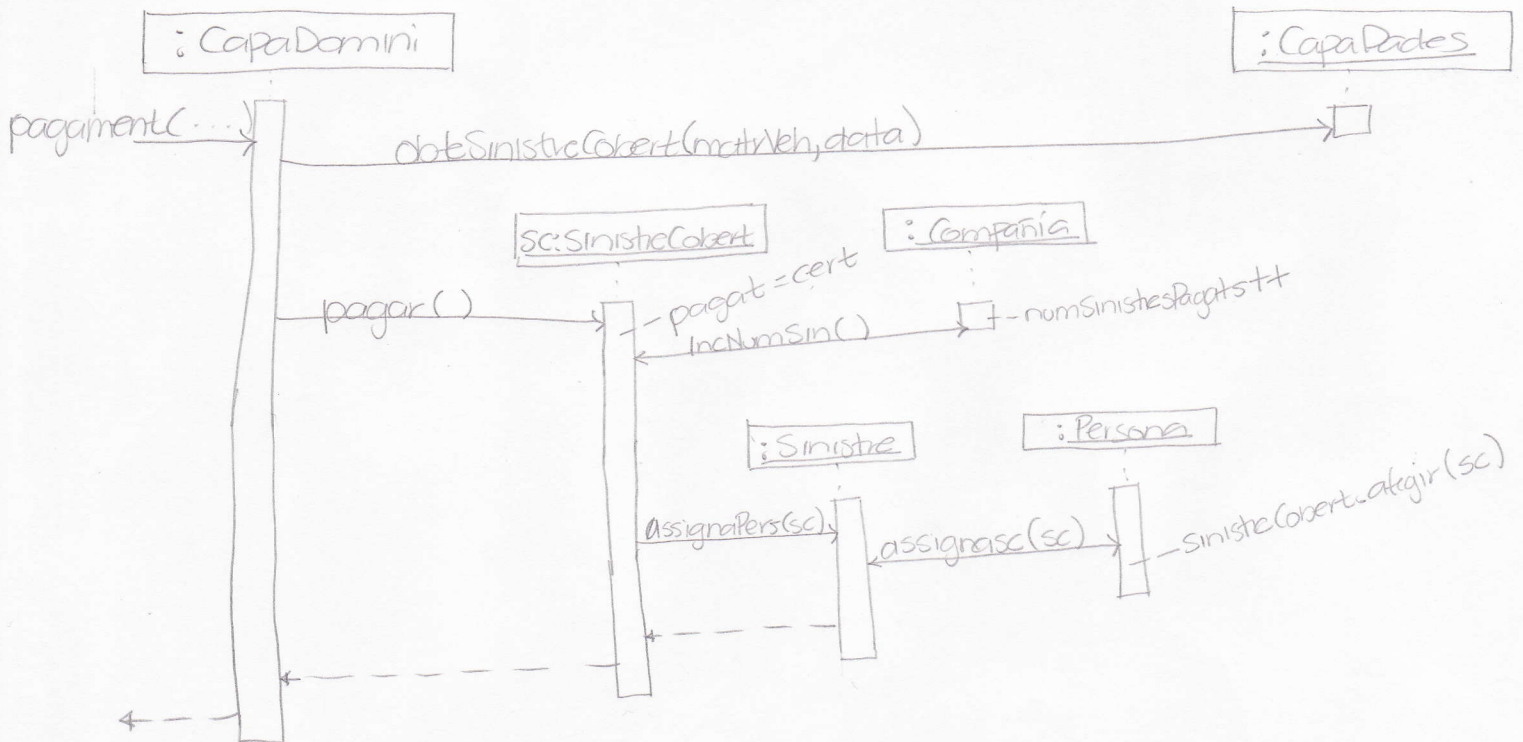 : CapaDomini
: CapaDades
pagament(....)
obteSinistreCobert(matrVeh, data)
sc:SinistreCobert
: Compañía
pagar()
- pagat = cert
- numSinistresPagats++
IncNumSin()
: Sinistre
: Persona
assignaPers(sc)
assignasc(sc)
- SinistreCobert.afegir(sc)